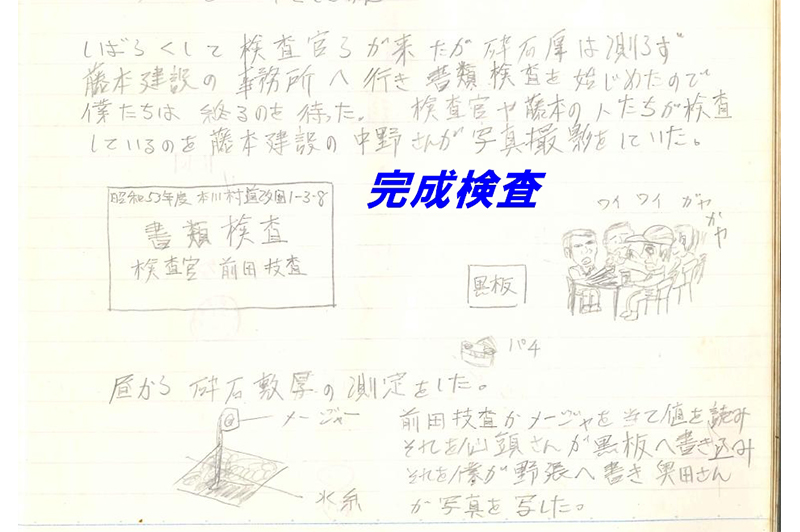 しばらくして検査官らが来たが砕石厚は測らず
藤本建設の事務所へ行き書類検査を始じめたので
僕たちは終るのを待った。 検査官や藤本の人たちが検査
しているのを藤本建設の中野さんが写真撮影をしていた。
完成検査
昭和53年度 本川村 1-3-8
書類検査
検査官 前田技査
ワイ ワイ ガヤガヤ
黒板
パチ
昼から砕石敷厚の測定をした。
メージャー
水糸
前田技査がメージャを当て値を読み
それを仙頭さんが黒板へ書き込み
それを僕が野張へ書き奥田さん
が写真を写した。